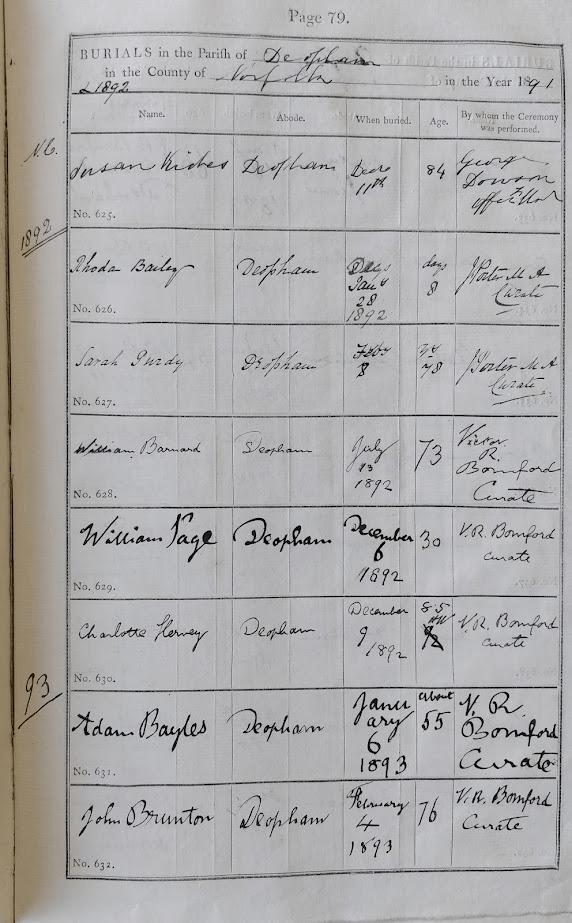 Page 79.
BURIALS in the Parish of Deopham
in the County of Norfolk in the Year 1891
& 1892
Name. Abode. When buried. Age. By whom the Ceremony was performed.
N.C.
Susan Kickes Deopham Decr 11th 84 George Dowson
No. 625.
1892
Rhoda Bailey Deopham Jany 28 1892 days 8 J Porter M A Curate
No. 626.
Sarah Purdy Deopham Feby 8 78 J Porter M A Curate
No. 627.
William Barnard Deopham July 13 1892 73 Victor R. Bomford Curate
No. 628.
William Page Deopham December 6 1892 30 V. R. Bomford Curate
No. 629.
Charlotte Hervey Deopham December 9 1892 85 V. R. Bomford Curate
No. 630.
93
Adam Bayles Deopham January 6 1893 about 55 V. R Bomford Curate
No. 631.
John Brunton Deopham February 4 1893 76 V. R. Bomford Curate
No. 632.